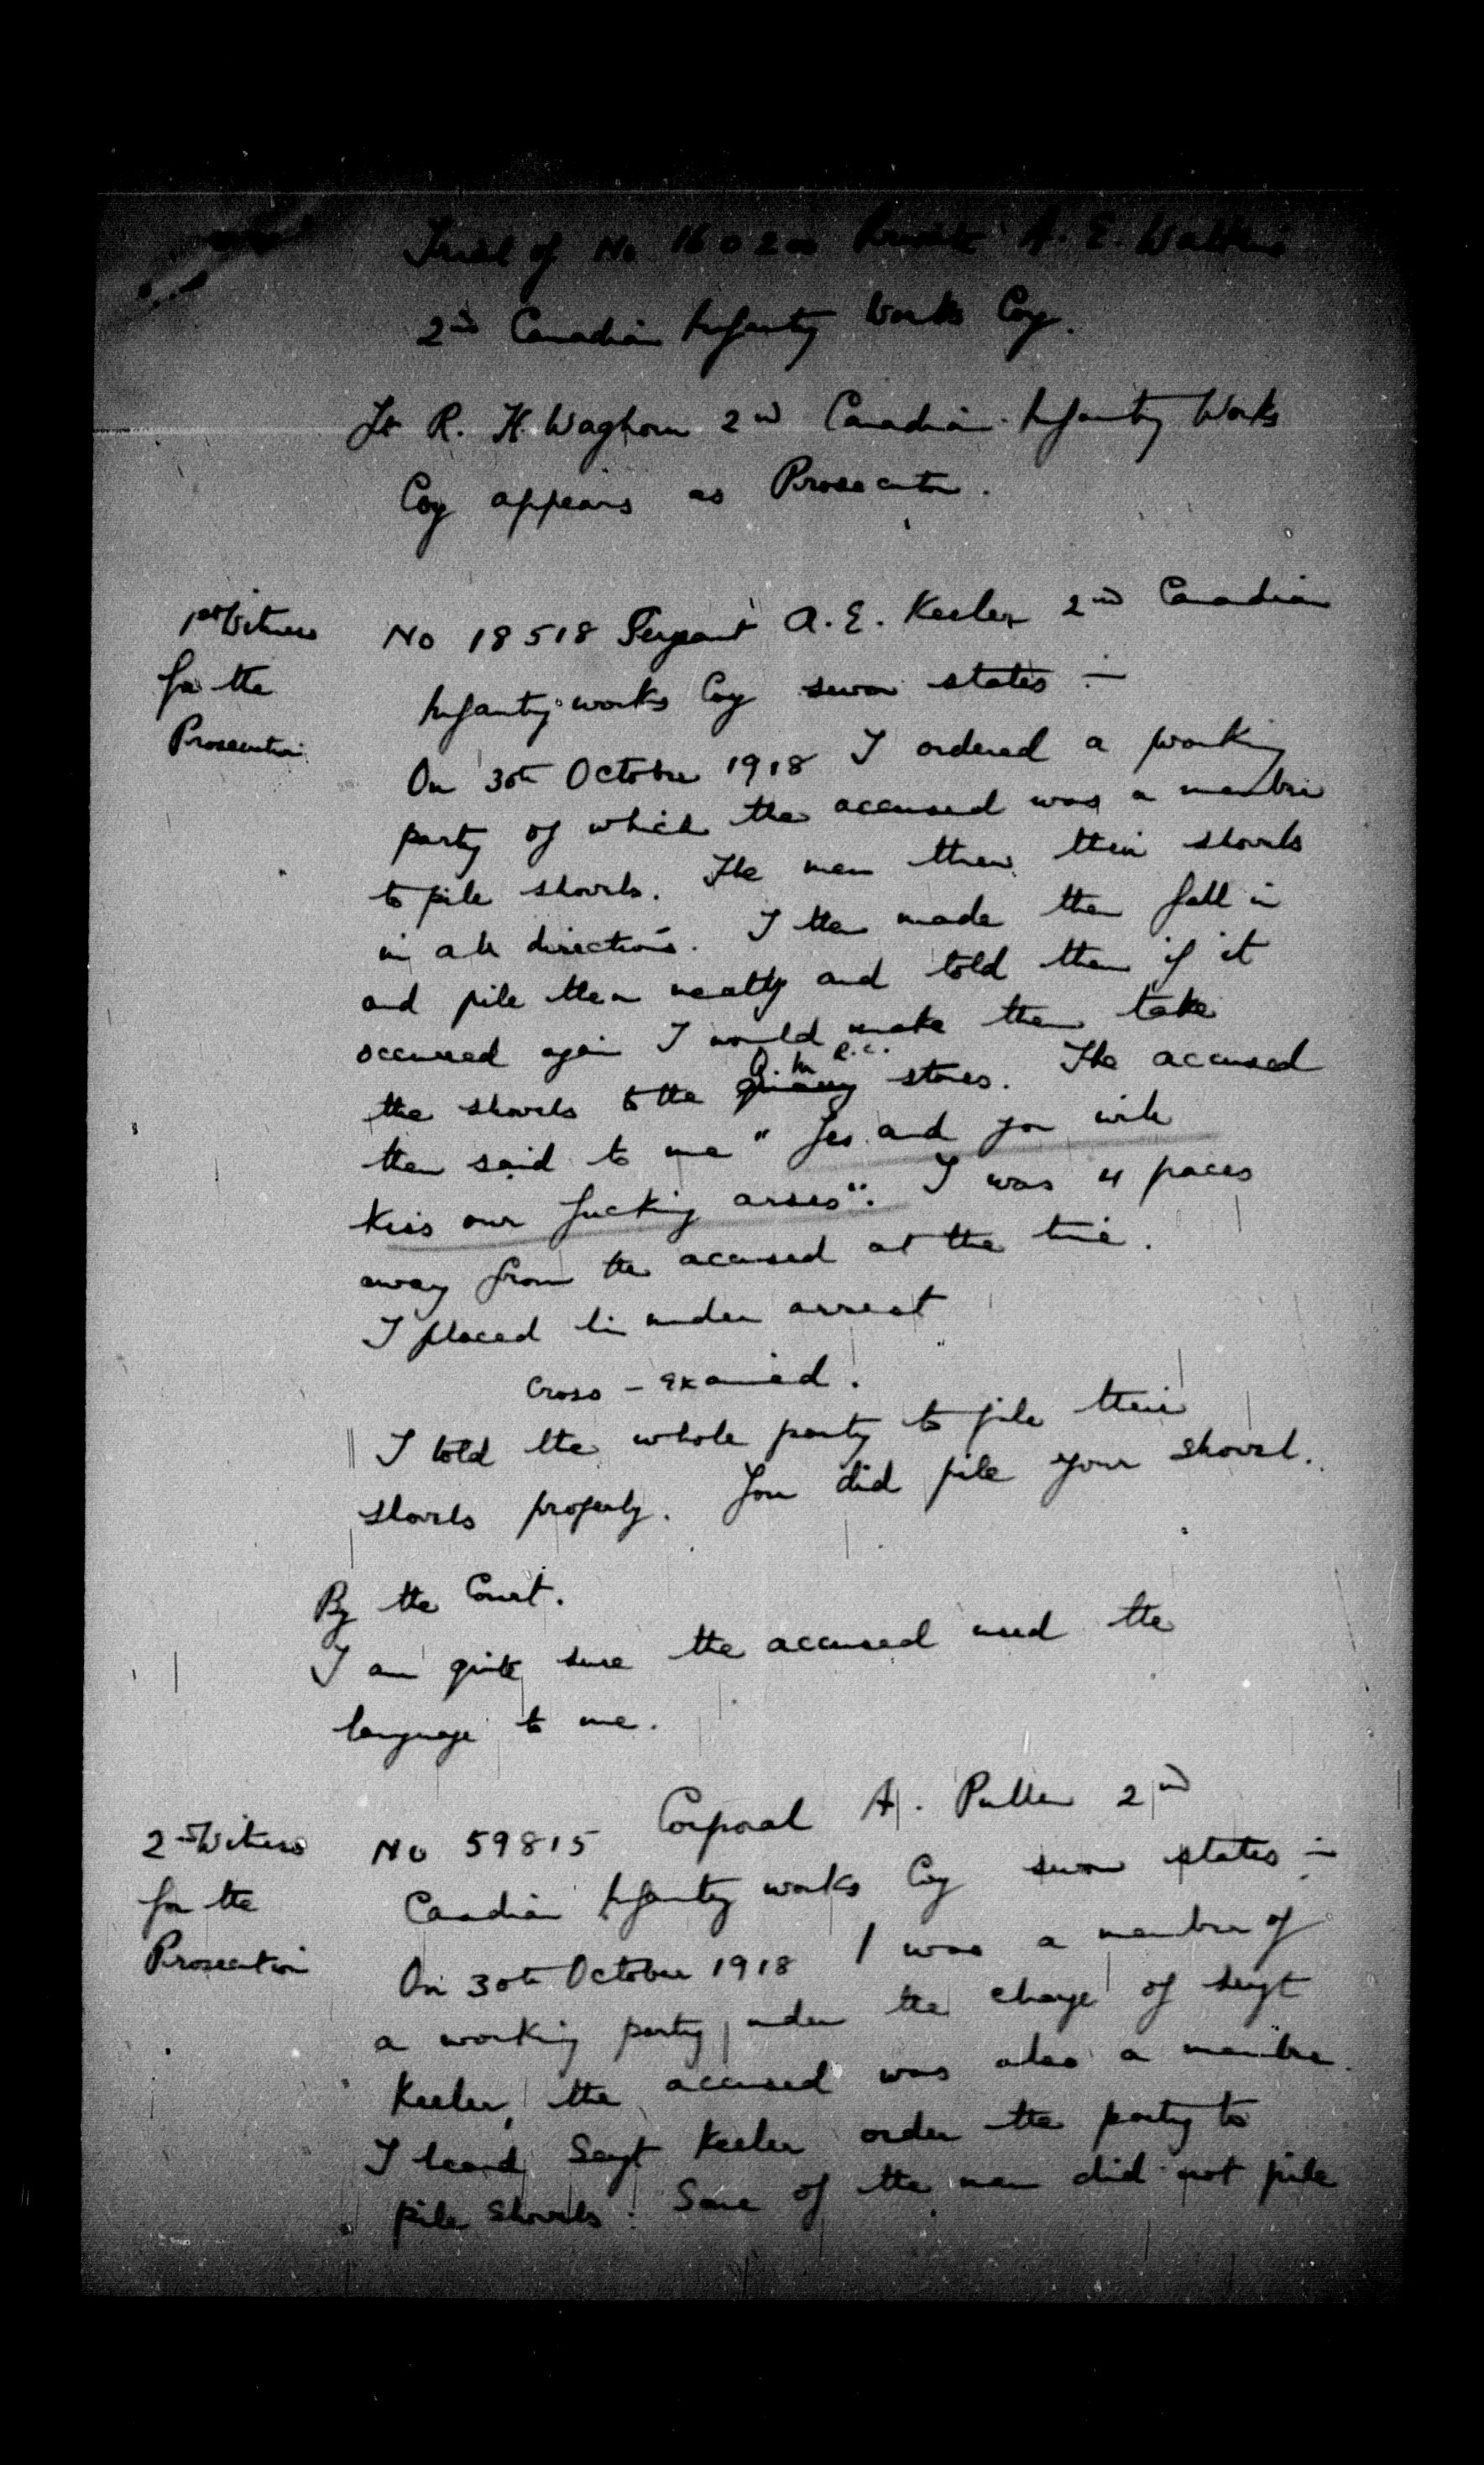 Trial of No 160200 Private A. E. Watkins
2nd Canadian Infantry Works Coy.
Lt R. H. Waghorn 2nd Canadian Infantry Works
Coy appears as Prosecutor.
1st Witness
for the
Prosecution
No 18518 Sergeant A. E. Keeler 2nd Canadian
Infantry works Coy sworn states :-
On 30th October 1918 I ordered a working
party of which the accused was a member
to pile shovels. The men threw their shovels
in all directions. I then made them fall in
and pile them neatly and told them if it
occurred again I would make them take
the shovels to the Q. M. stores. The accused
then said to me " Yes and you will
kiss our fucking arses". I was 4 paces
away from the accused at the time.
I placed him under arrest
Cross - examined.
I told the whole party to pile their
shovels properly. You did pile your shovel.
By the Court.
I am quite sure the accused used the
language to me.
2nd Witness
for the
Prosecution
No 59815 Corporal A. Pullen 2nd
Canadian Infantry works Coy sworn states :-
On 30th October 1918 I was a member of
a working party under the charge of Sergt
Keeler, the accused was also a member.
I heard Sergt Keeler order the party to
pile shovels. Some of the men did not pile